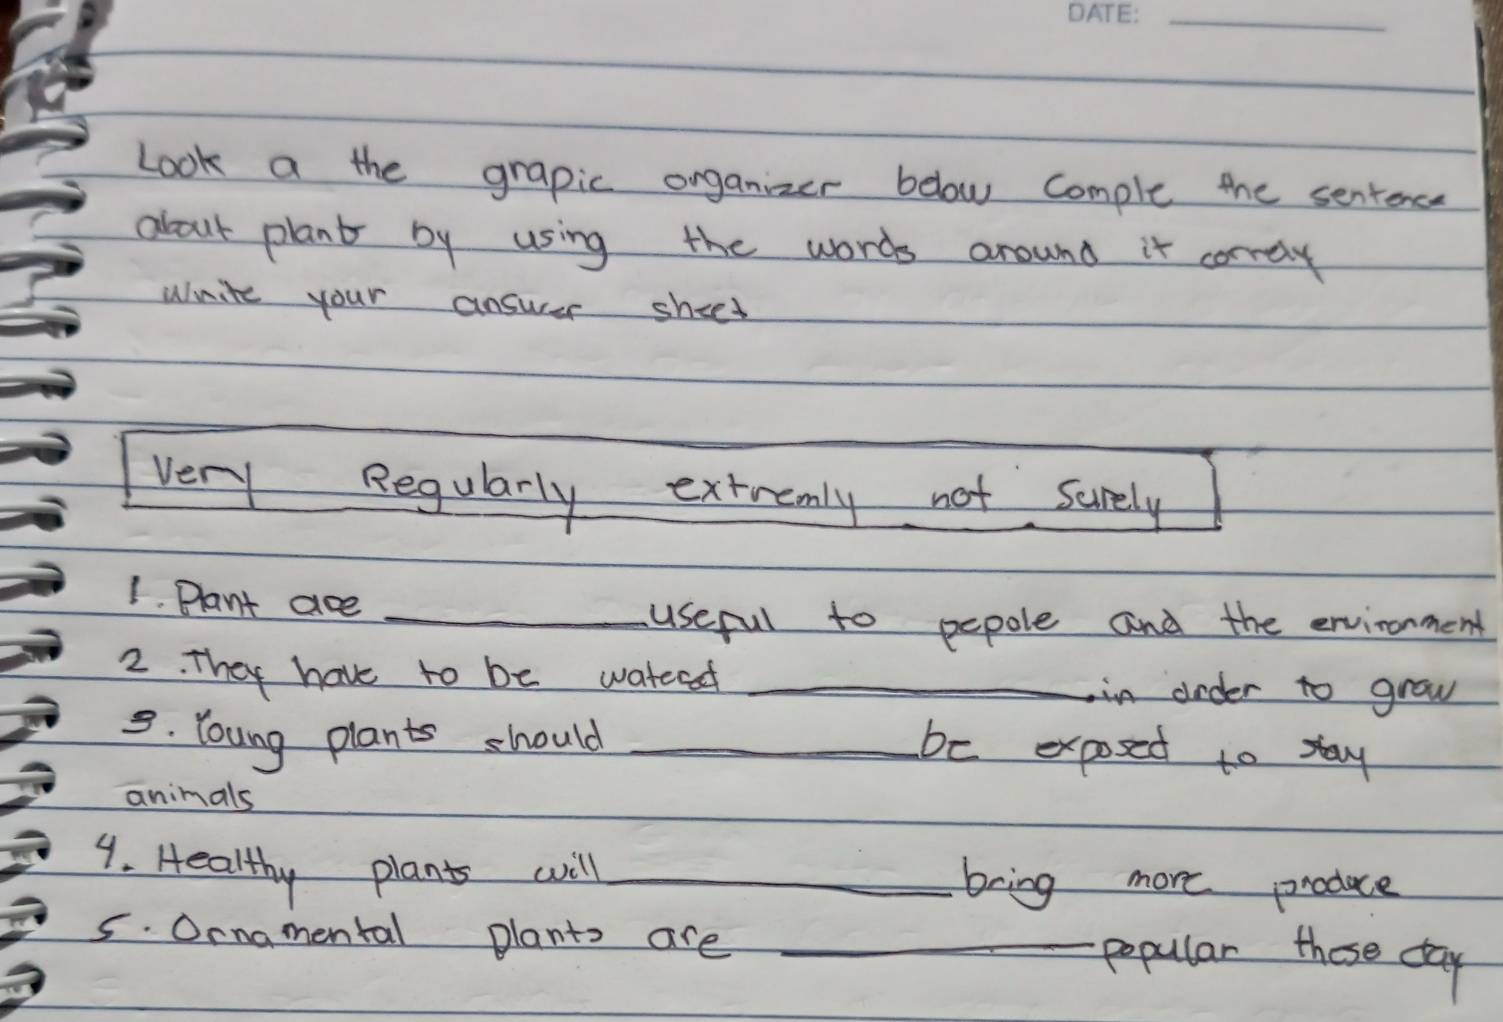 DATE:
Look a the grapic organizer below Comple the sentence
about plants by using the words around it correly
Write your answer sheet
Very Regularly extremly not Surely
1. Plant are useful to pepole and the environment
2. They have to be watered in order to grow
3. Young plants should be exposed to stay
animals
4. Healthy plants will bring more produce
5. Ornamental plants are popular these day